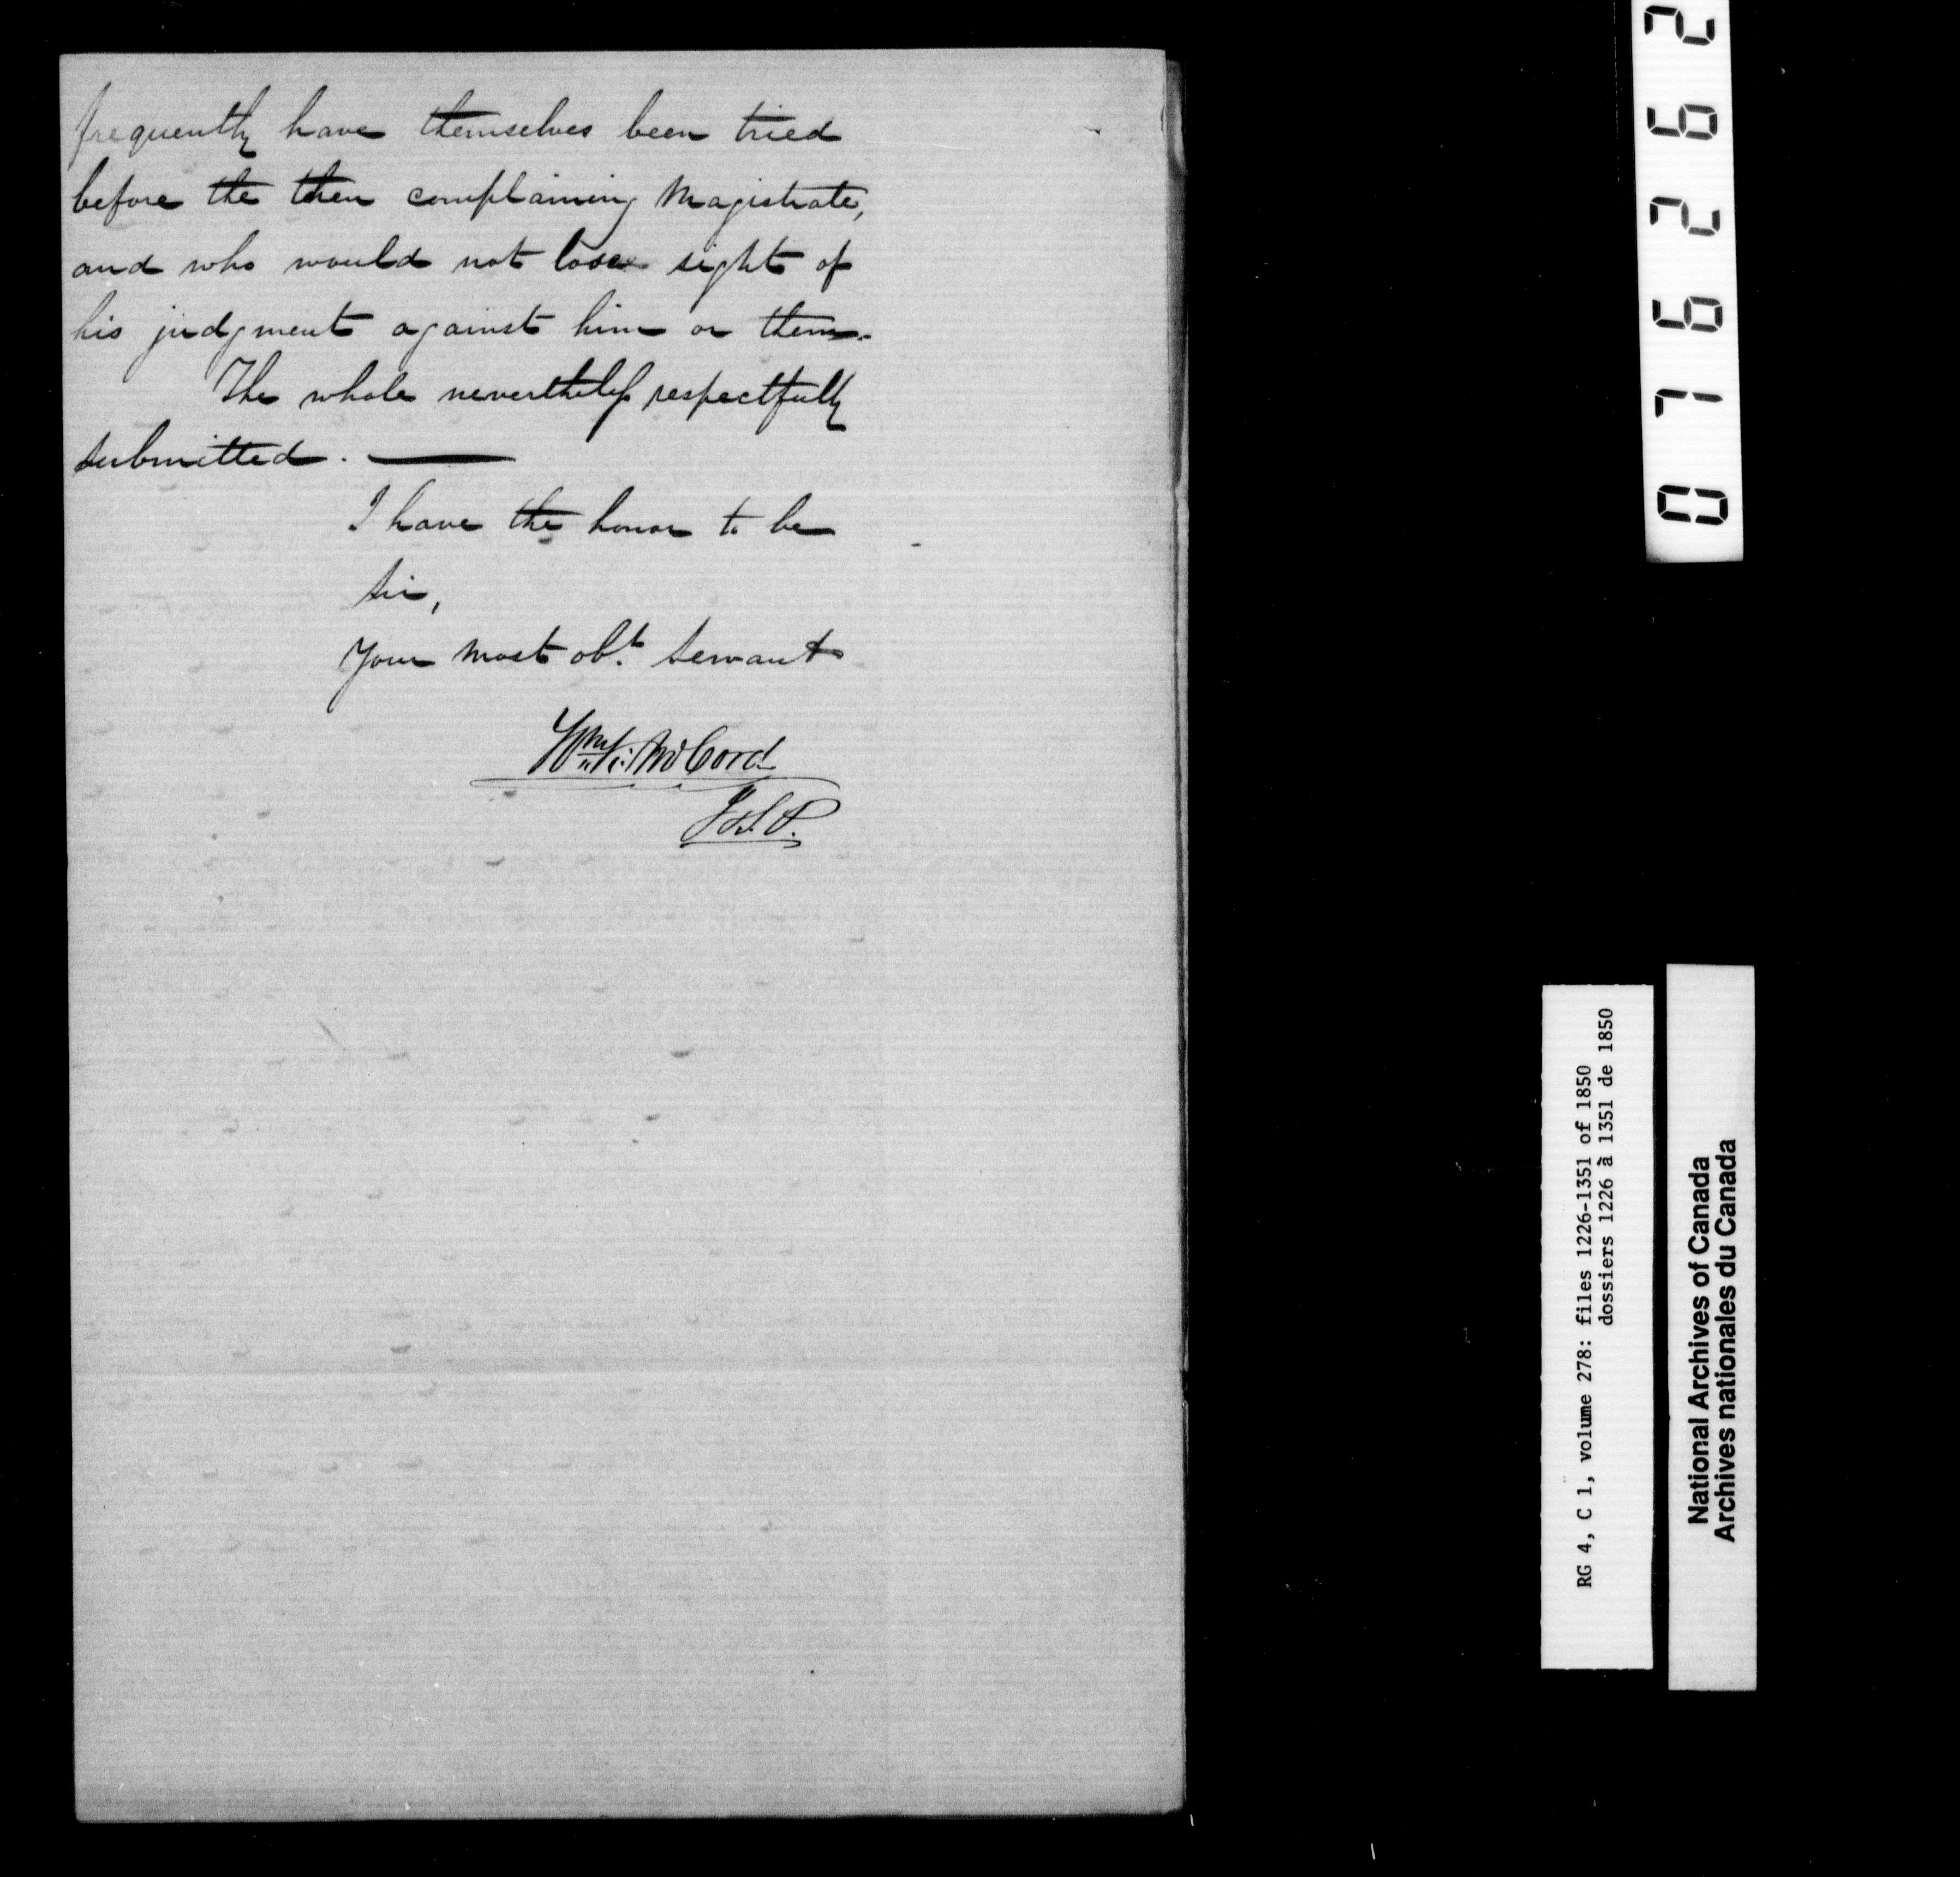 frequently have themselves been tried
before the then complaining Magistrate,
and who would not lose sight of
his judgment against him or them.
The whole nevertheless respectfully
submitted. —
I have the honor to be
Sir,
Your most obt. Servant
Wm. K. McCord
J.S.P.
076262
RG 4, C 1, volume 278: files 1226-1351 of 1850
dossiers 1226 à 1351 de 1850
National Archives of Canada
Archives nationales du Canada